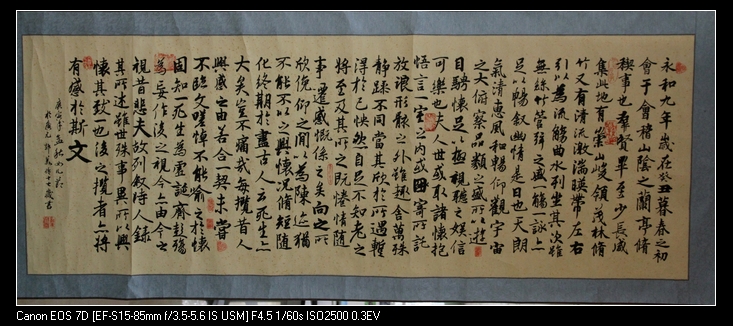 永和九年歲在癸丑暮春之初
會于會稽山陰之蘭亭脩
禊事也羣賢畢至少長咸
集此地有崇山峻領茂林脩
竹又有清流激湍暎帶左右
引以為流觴曲水列坐其次雖
無絲竹管弦之盛一觴一詠亦
足以暢叙幽情是日也天朗
氣清惠風和暢仰觀宇宙
之大俯察品類之盛所以遊
目騁懷足以極視聽之娛信
可樂也夫人世或取諸懷抱
悟言一室之內或因寄所託
放浪形骸之外雖趣舍萬殊
靜躁不同當其欣於所遇暫
得於己怏然自足不知老之
將至及其所之既惓情隨
事遷感慨係之矣向之所
欣俛仰之閒以為陳迹猶
不能不以之興懷况脩短隨
化終期於盡古人云死生亦
大矣豈不痛哉每攬昔人
興感之由若合一契未嘗
不臨文嗟悼不能喻之於懷
固知一死生為虛誕齊彭殤
為妄作後之視今亦由今之
視昔悲夫故列敘時人錄
其所述雖世殊事異所以興
懷其致一也後之攬者亦將
有感於斯文
庚寅年孟秋
Canon EOS 7D [EF-S15-85mm f/3.5-5.6 IS USM] F4.5 1/60s ISO2500 0.3EV